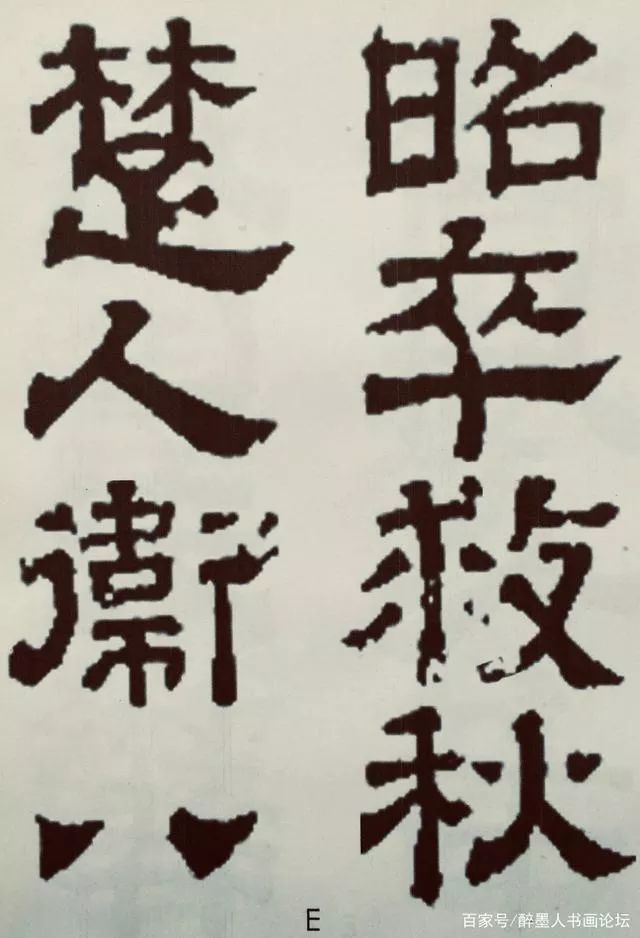 昭卒救秋
楚人衛
E
百家号/醉墨人书画论坛